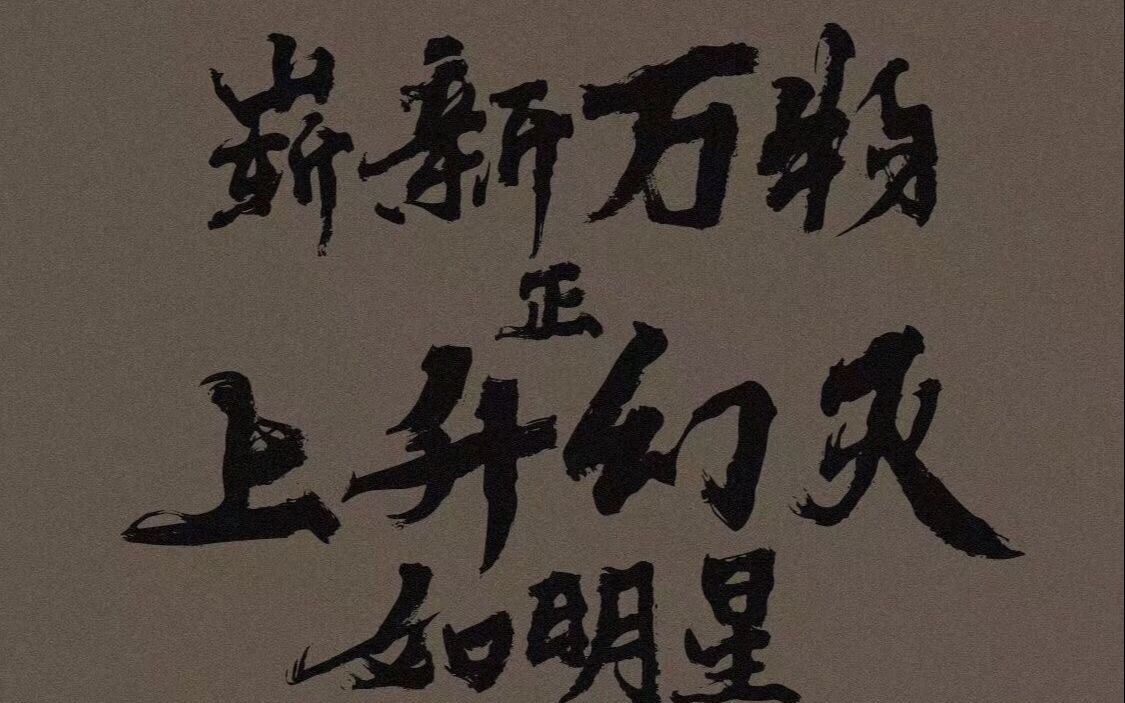 崭新万物
正
上升幻灭
如明星